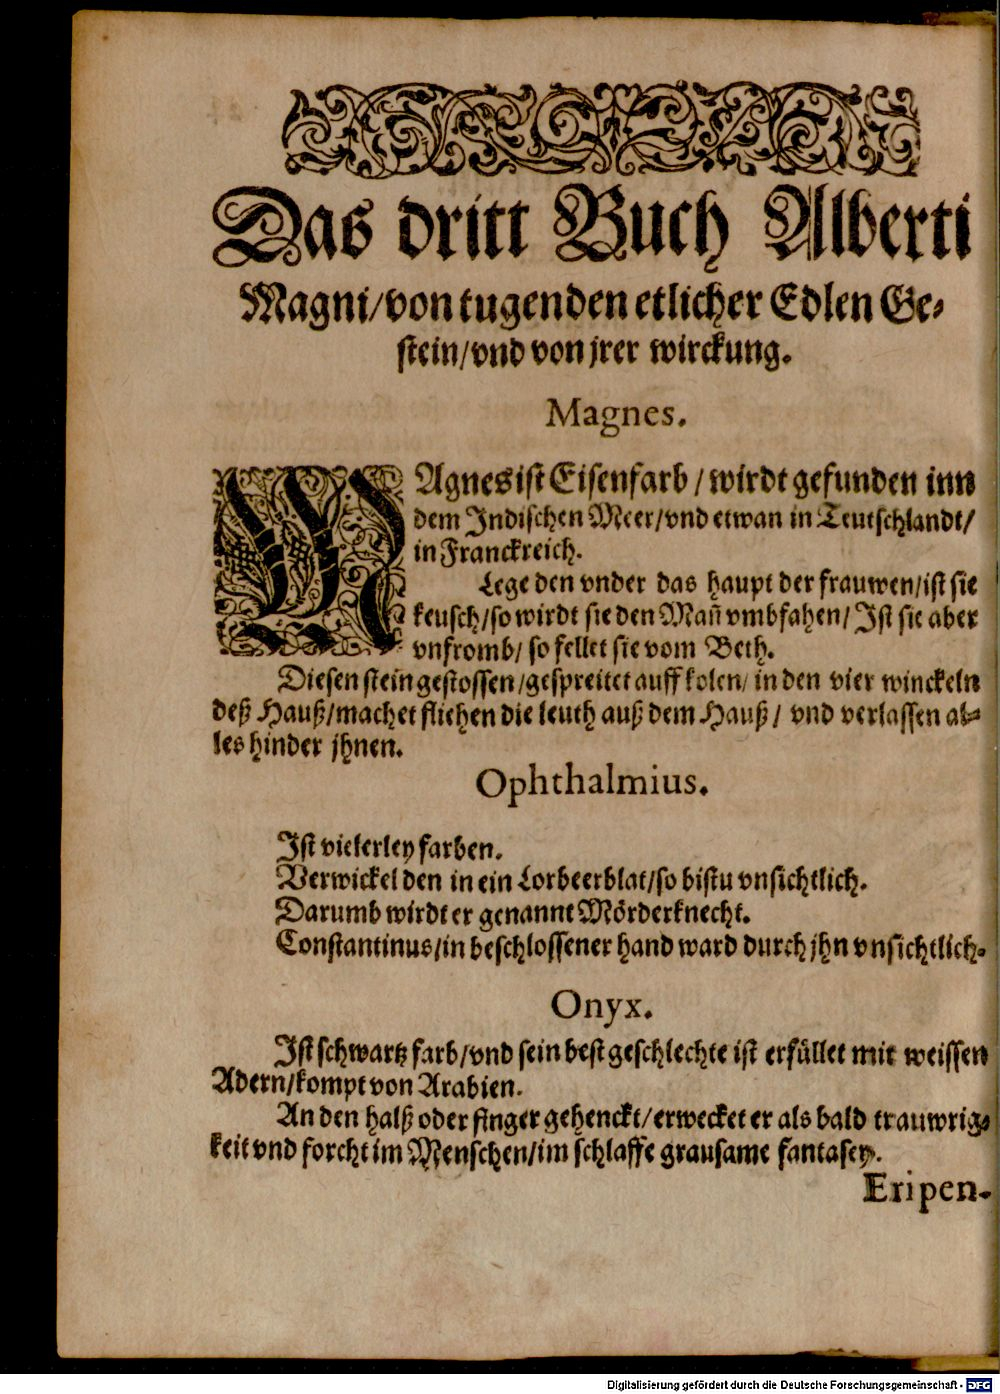 Das dritt Buch Alberti
Magni/von tugenden etlicher Edlen Ge-
stein/vnd von jrer wirckung.
Magnes.
MAgnes ist Eisenfarb / wirdt gefunden inn
dem Indischen Meer/vnd etwan in Teutschlandt/
in Franckreich.
Lege den vnder das haupt der frauwen/ist sie
keusch/so wirdt sie den Mañ vmbfahen/ Ist sie aber
vnfromb/ so fellet sie vom Beth.
Diesen stein gestossen/gespreitet auff kolen/ in den vier winckeln
deß Hauß/machet fliehen die leuth auß dem Hauß/ vnd verlassen al-
les hinder jhnen.
Ophthalmius.
Ist vielerley farben.
Verwickel den in ein Lorbeerblat/so bistu vnsichtlich.
Darumb wirdt er genannt Mörderknecht.
Constantinus/in beschlossener hand ward durch jhn vnsichtlich.
Onyx.
Ist schwartz farb/vnd sein best geschlechte ist erfüllet mit weissen
Adern/kompt von Arabien.
An den halß oder finger gehenckt/erwecket er als bald trauwrig-
keit vnd forcht im Menschen/im schlaffe grausame fantasey.
Eripen-
Digitalisierung gefördert durch die Deutsche Forschungsgemeinschaft - DFG